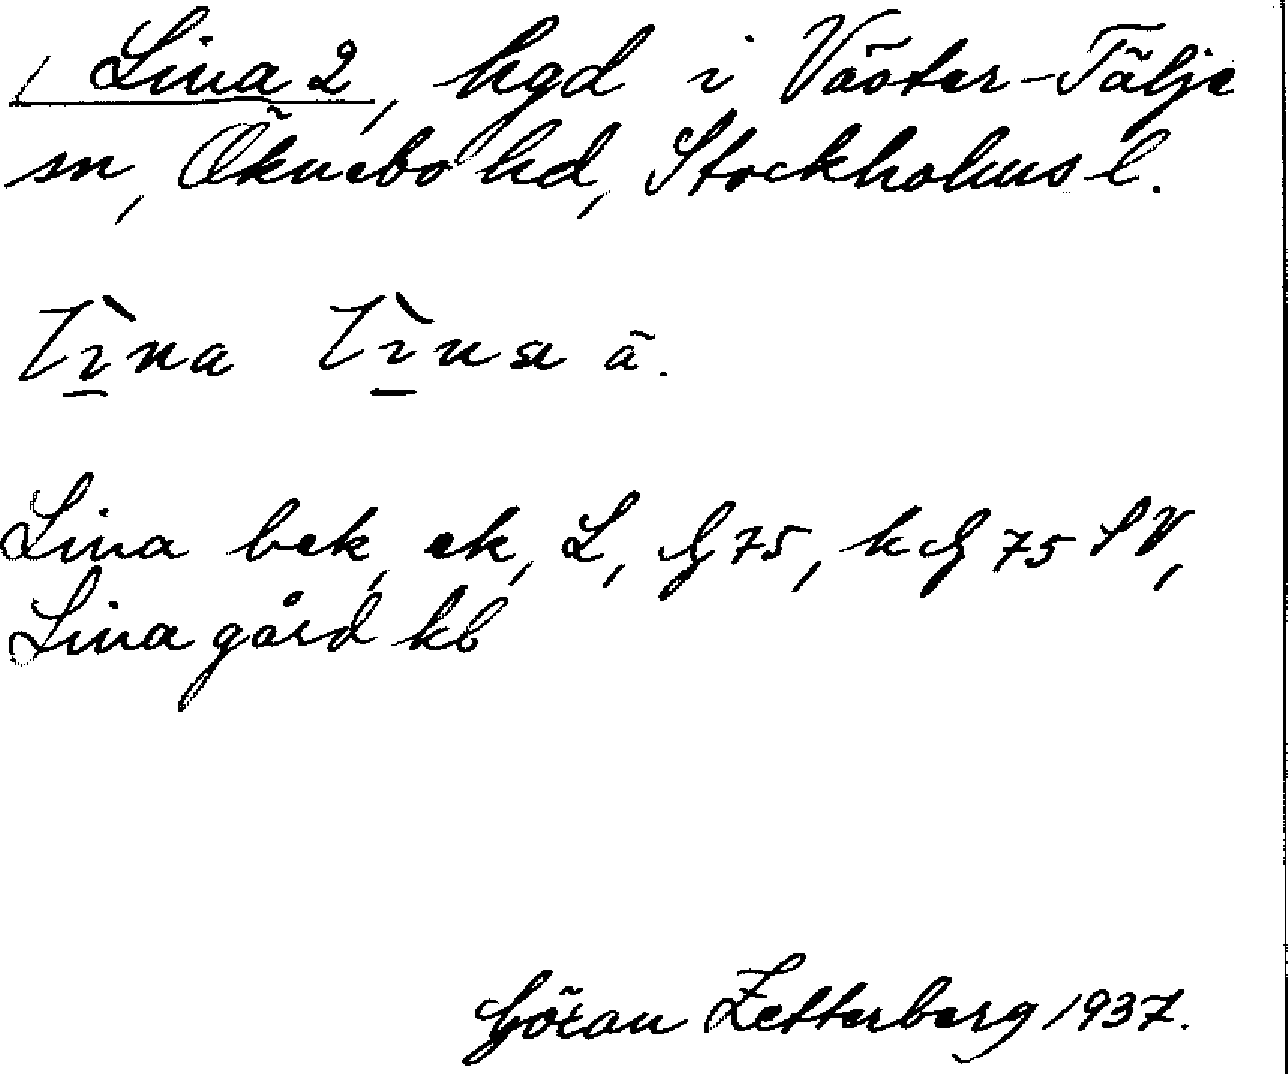 Lina 2, hgd i Väster-Tälje
sn, Öknebo hd, Stockholms l.
Lina bek, ek, L, G 75, k G 75 SV,
Lina gård kb
Göran Zetterberg 1937.